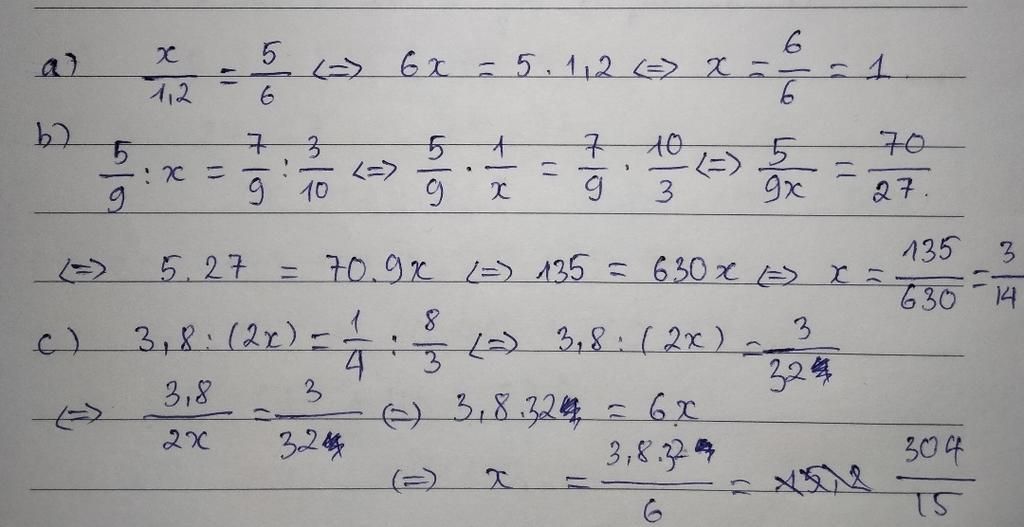 a) x/1,2 = 5/6 <=> 6x = 5.1,2 <=> x = 6/6 = 1
b) 5/9 : x = 7/9 : 3/10 <=> 5/9 . 1/x = 7/9 . 10/3 <=> 5/9x = 70/27.
<=> 5.27 = 70.9x <=> 135 = 630x <=> x = 135/630 = 3/14
c) 3,8 : (2x) = 1/4 : 8/3 <=> 3,8 : (2x) = 3/32
<=> 3,8/2x = 3/32 (=) 3,8.32 = 6x
(=) x = 3,8.32/6 = 304/15